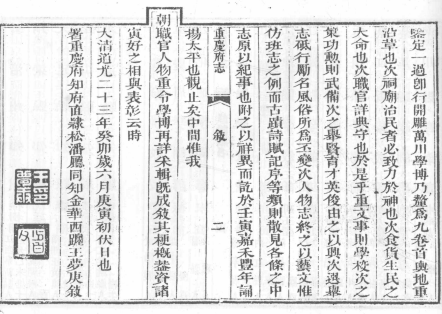 鑒定一過卽行開雕萬川學博乃釐為九卷首輿地重
沿革也次祠廟治民者必致力於神也次食貨生民之
大命也次職官詳典守也於是乎重文事則學校次之
策功勲則武備次之舉賢育才英俊由之以興次選舉
志砥行勵名風俗所為丕變次人物志終之以藝文惟
仿班志之例而古蹟詩賦記序等類則散見各條之中
志原以紀事也附之以祥異而訖於壬寅嘉禾豐年誦
揚太平也觀止矣中間惟我
重慶府志
敘
二
朝職官人物重令學博再詳采輯旣成敘其梗概並資語
寅好之相與表彰云時
大清道光二十三年癸卯歲六月庚寅初伏日也
署重慶府知府直隸松潘廳同知金華西躔王夢庚敘